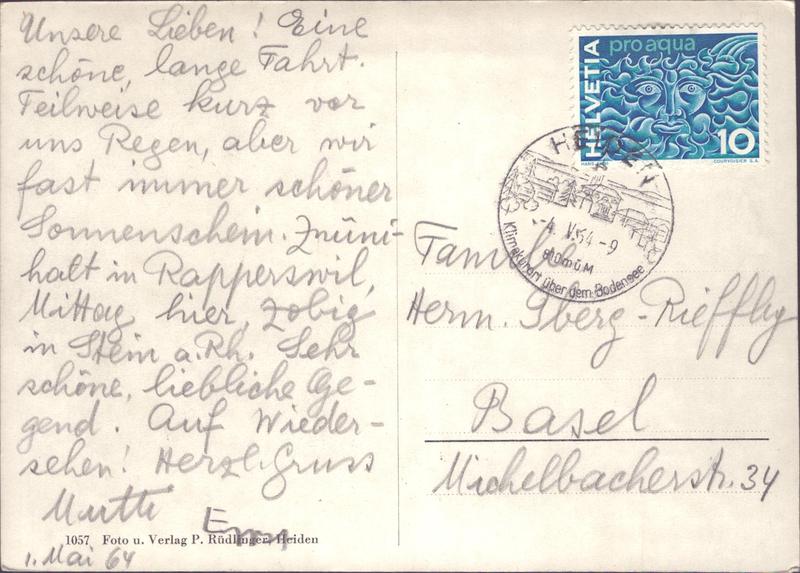 Unsere Lieben! Eine
schöne, lange Fahrt.
Teilweise kurz vor
uns Regen, aber wir
fast immer schöner
Sonnenschein. Znüni-
halt in Rapperswil,
Mittag hier, Zobig
in Stein a. Rh. Sehr
schöne, liebliche Ge-
gend. Auf Wieder-
sehen! Herzl. Gruss
Mutti
1057 Foto u. Verlag P. Rüdlinger, Heiden
1. Mai 64
HELVETIA
pro aqua
10
COURVOISIER S.A.
HEIDEN
-4. V. 64-9
810 m ü M
Klimakurort über dem Bodensee
Familie
Herm. Iberg-Rieffly
Basel
Michelbacherstr. 34